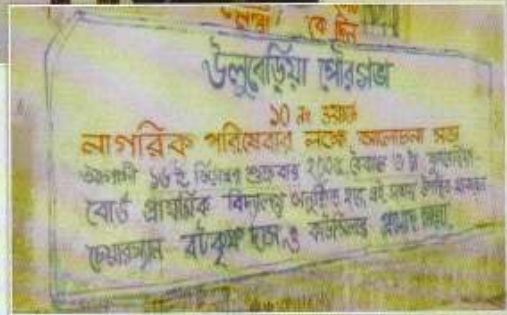 উলুবেড়িয়া পৌরসভা
১০ নং ওয়ার্ড
নাগরিক পরিষেবার লক্ষ্যে আলোচনা সভা
আগামী ১৬ই ডিসেম্বর শুক্রবার ২০০৫ বৈকাল ৩ টা
বোর্ড প্রাথমিক বিদ্যালয়ে অনুষ্ঠিত হবে, এই সভায় উপস্থিত থাকবেন
চেয়ারম্যান বটকৃষ্ণ দাস ও কাউন্সিলর